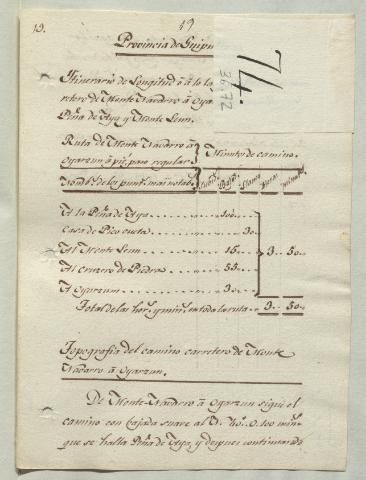 19.
19
74
36,72
Provincia de Guipu
Itinerario de Longitud ó á lo la
retero de Monte Navarro á Oyar
Peña de Aya y Monte Leun.
Ruta de Monte Navarro á
Oyarzun á pie, paso regular
Minutos de camino.
Nombs. de los punts. mas notabs.
Subid. Bajad. Llano Horas minut.
A la Peña de Aya 100
Casa de Picocueta 30
Al Monte Leun 15 3 50
Al cruzero de Piedra 55
A Oyarzun 30
Total de las hors. y mins. en toda la ruta 3 50
Topografia del camino carretero de Monte
Navarro á Oyarzun.
De Monte-Navarro á Oyarzun sigue el
camino con bajada suave al
que se halla Peña de Aya, y despues continuando